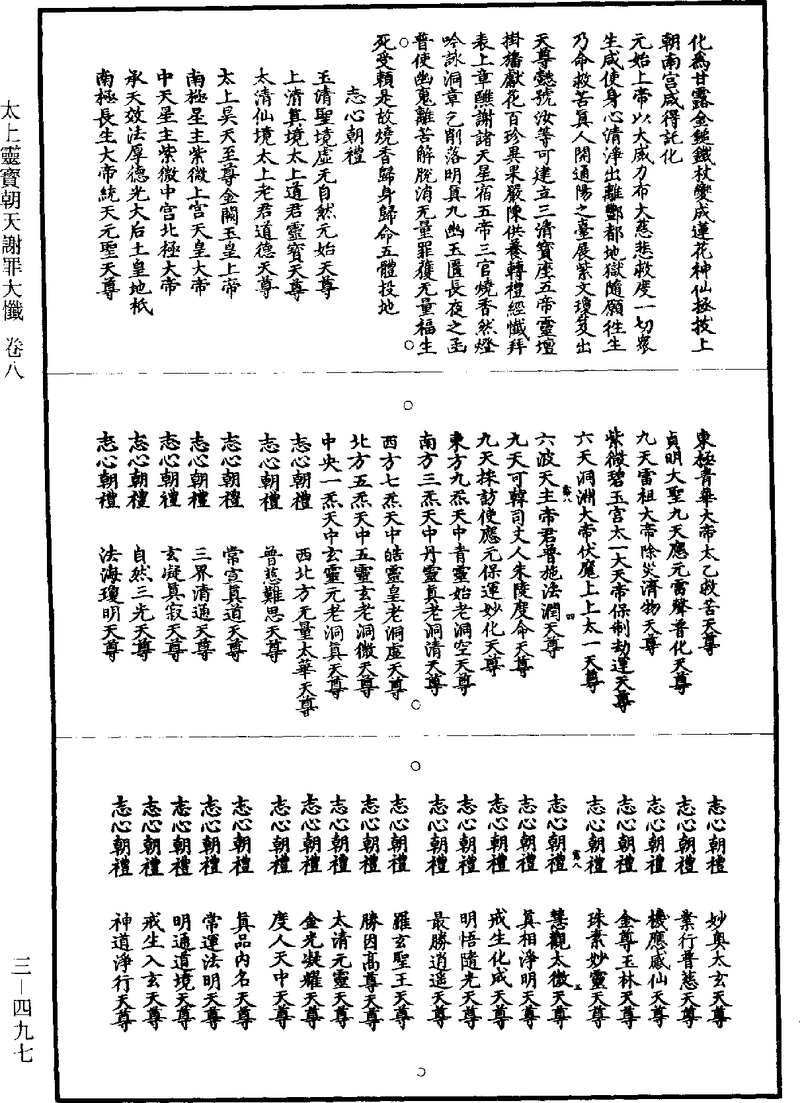 化為甘露金鎚鐵杖變成蓮花神仙拯拔上
朝南宮咸得託化
元始上帝以大威力布大慈悲救度一切眾
生咸使身心清淨出離酆都地獄隨願往生
乃命救苦真人開通陽之臺展紫文瓊笈出
天尊懿號汝等可建立三清寶座五帝靈壇
掛旛獻花百珍異果嚴陳供養轉禮經懺拜
表上章醮謝諸天星宿五帝三官燒香然燈
吟詠洞章乞削落明真九幽玉匱長夜之函
普使幽冤離苦解脫消无量罪獲无量福生
死受賴是故燒香歸身歸命五體投地
志心朝禮
玉清聖境虛无自然元始天尊
上清真境太上道君靈寶天尊
太清仙境太上老君道德天尊
太上昊天至尊金闕玉皇上帝
南極星主紫微上宮天皇大帝
中天星主紫微中宮北極大帝
承天效法厚德光大后土皇地祇
南極長生大帝統天元聖天尊
東極青華大帝太乙救苦天尊
貞明大聖九天應元雷聲普化天尊
九天雷祖大帝除災濟物天尊
紫微碧玉宮太一大天帝保制劫運天尊
六天洞淵大帝伏魔上上太一天尊
六波天主帝君普施法潤天尊
九天可韓司丈人朱陵度命天尊
九天採訪使應元保運妙化天尊
東方九炁天中青靈始老洞空天尊
南方三炁天中丹靈真老洞清天尊
西方七炁天中皓靈皇老洞虛天尊
北方五炁天中五靈玄老洞微天尊
中央一炁天中玄靈元老洞真天尊
志心朝禮 西北方无量太華天尊
志心朝禮 普慈難思天尊
志心朝禮 常宣真道天尊
志心朝禮 三界清通天尊
志心朝禮 玄凝真寂天尊
志心朝禮 自然三光天尊
志心朝禮 法海瓊明天尊
志心朝禮 妙奧太玄天尊
志心朝禮 業行普慈天尊
志心朝禮 機應感仙天尊
志心朝禮 金尊玉林天尊
志心朝禮 珠素妙靈天尊
志心朝禮 慧觀太微天尊
志心朝禮 真相淨明天尊
志心朝禮 戒生化成天尊
志心朝禮 明悟隨光天尊
志心朝禮 最勝逍遙天尊
志心朝禮 羅玄聖王天尊
志心朝禮 勝因高尊天尊
志心朝禮 太清元靈天尊
志心朝禮 金光凝耀天尊
志心朝禮 度人天中天尊
志心朝禮 真品內名天尊
志心朝禮 常運法明天尊
志心朝禮 明通道境天尊
志心朝禮 戒生入玄天尊
志心朝禮 神道淨行天尊
太上靈寶朝天謝罪大懺 卷八
三－四九七